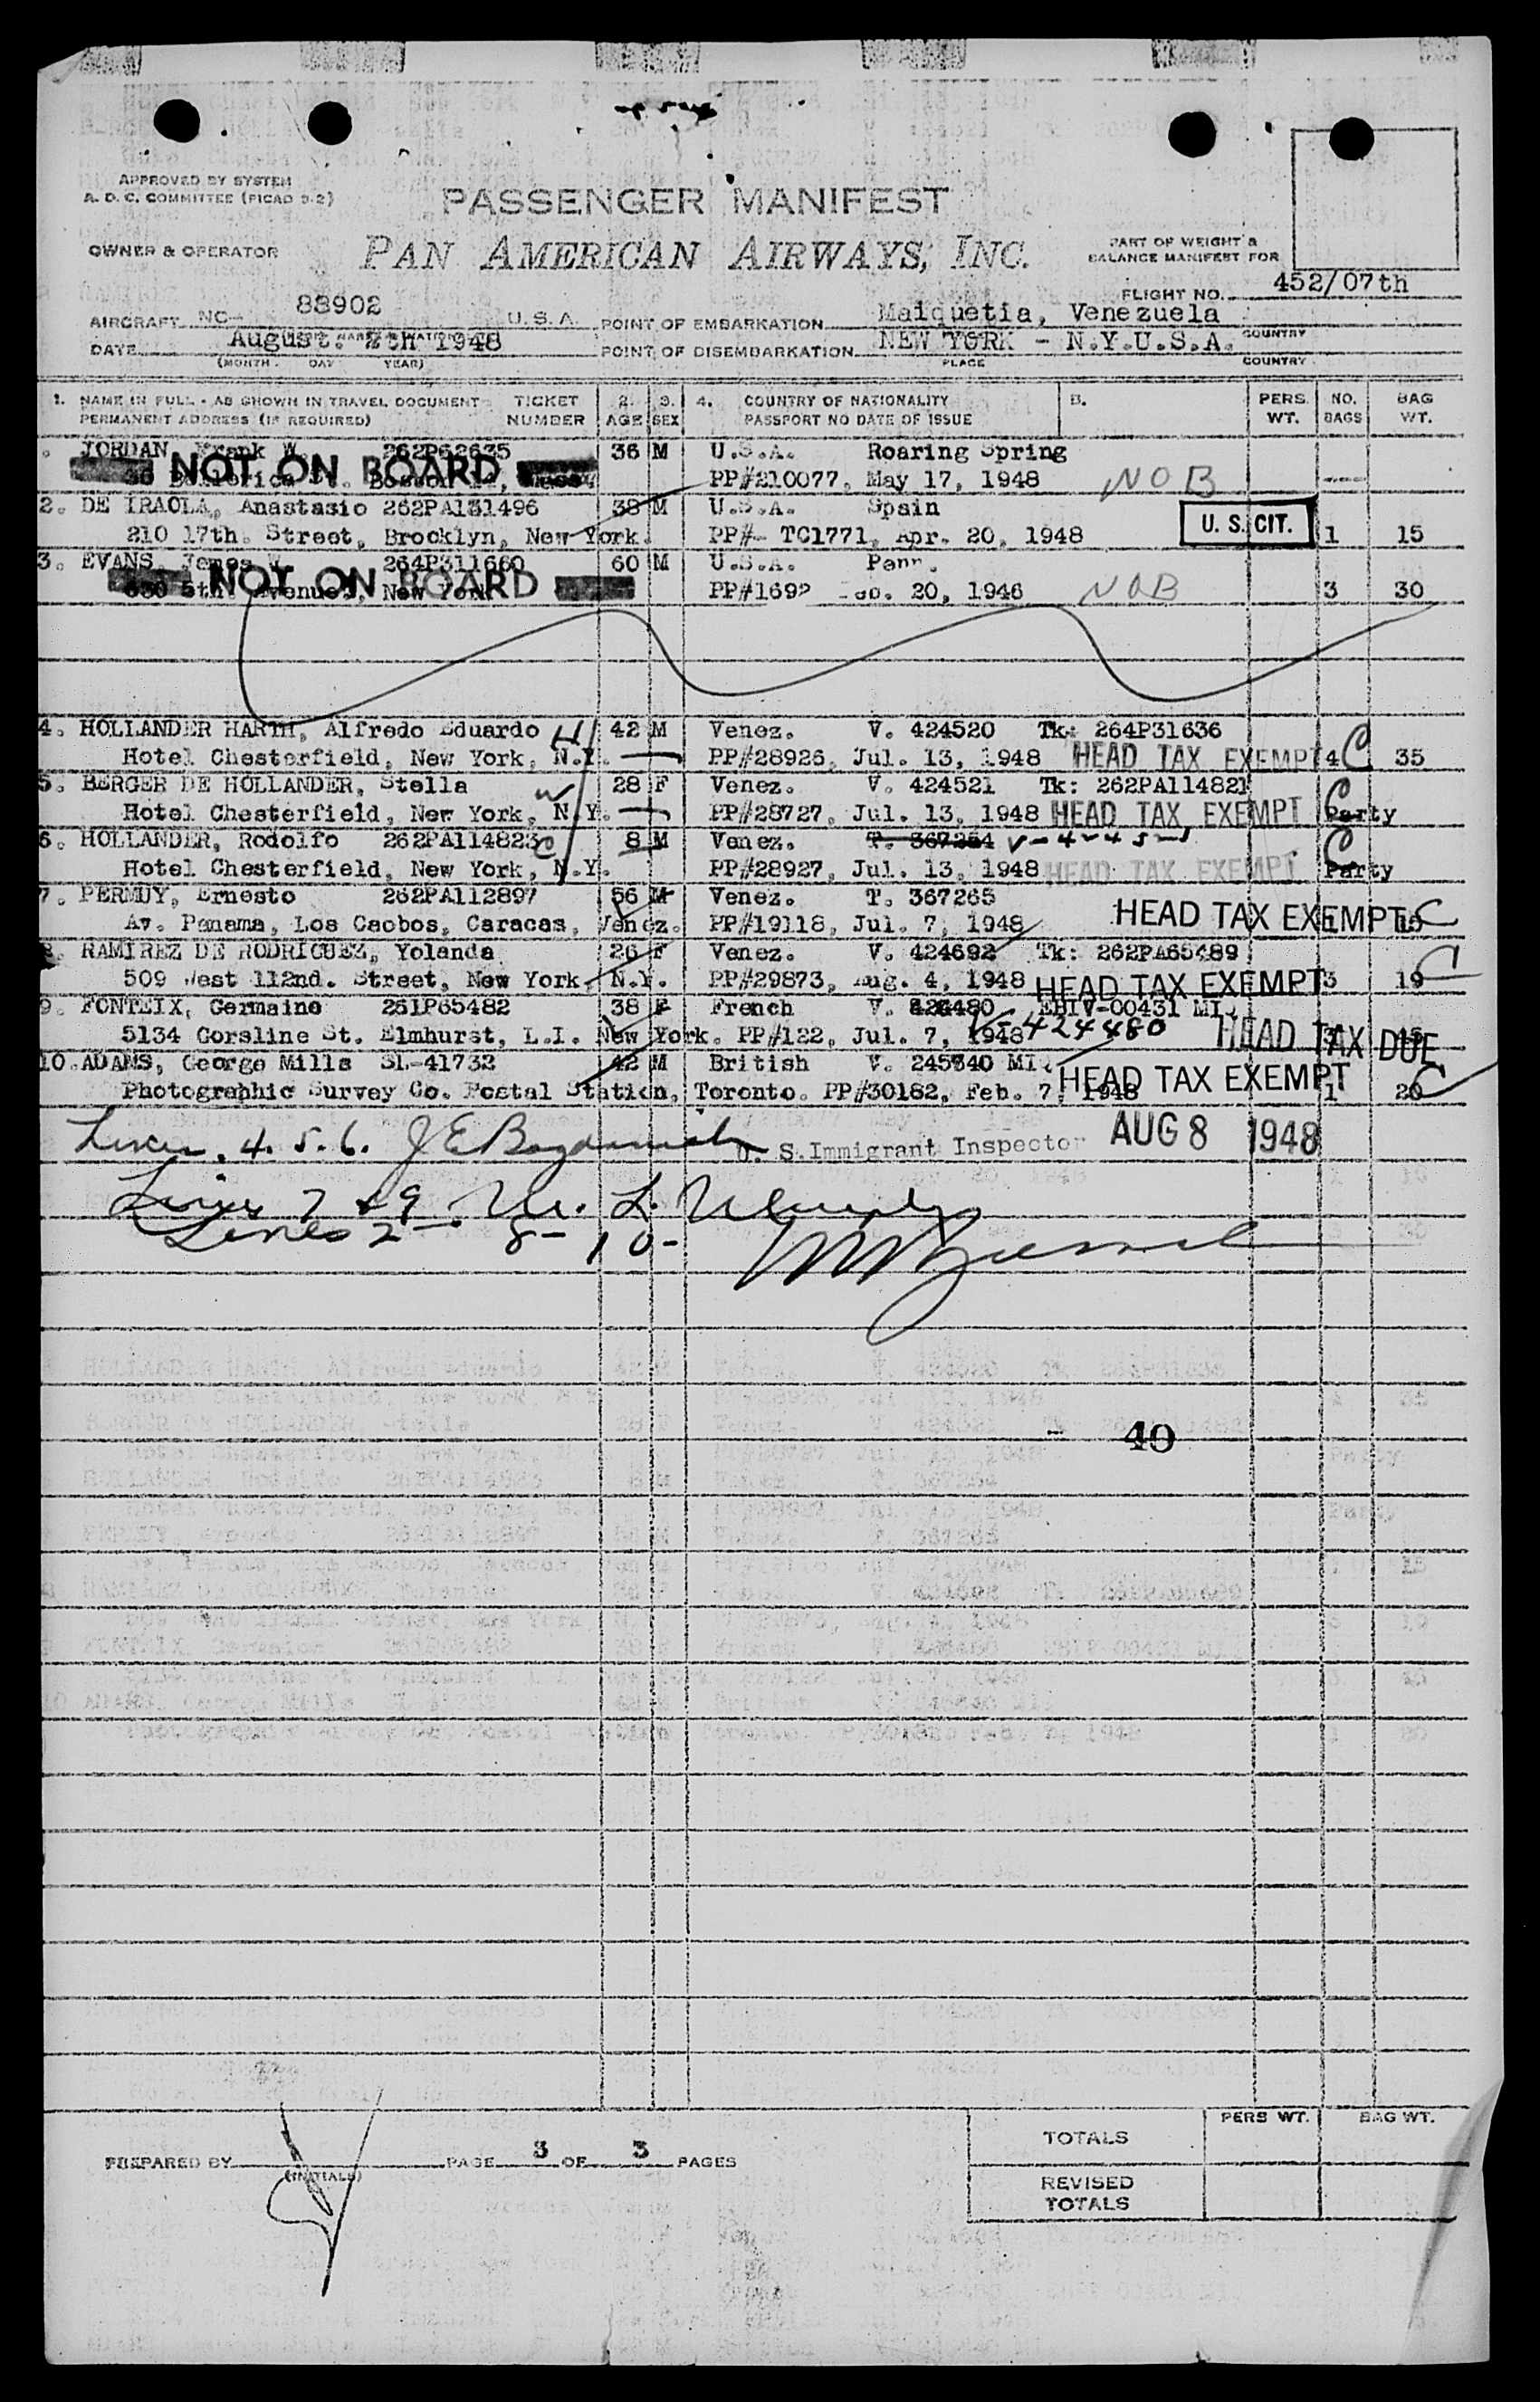 APPROVED BY SYSTEM
A. D. C. COMMITTEE (PICAO 9-2)
PASSENGER MANIFEST
OWNER & OPERATOR
PAN AMERICAN AIRWAYS, INC.
PART OF WEIGHT &
BALANCE MANIFEST FOR
FLIGHT NO. 452/07th
AIRCRAFT NC- 88902 U.S.A. POINT OF EMBARKATION Maiquetia, Venezuela COUNTRY
DATE August. 7th 1948 POINT OF DISEMBARKATION NEW YORK - N.Y.U.S.A.
(MONTH DAY YEAR) PLACE COUNTRY
1. NAME IN FULL - AS SHOWN IN TRAVEL DOCUMENT TICKET 2. 3. 4. COUNTRY OF NATIONALITY B. PERS. NO. BAG
PERMANENT ADDRESS (IF REQUIRED) NUMBER AGE SEX PASSPORT NO DATE OF ISSUE WT. BAGS WT.
JORDAN, Frank W. 262P62635 36 M U.S.A. Roaring Spring
NOT ON BOARD PP#210077, May 17, 1948 NOB
2. DE IRAOLA, Anastasio 262PA131496 38 M U.S.A. Spain
210 17th. Street, Brooklyn, New York. PP#- TC1771, Apr. 20, 1948 U. S. CIT. 1 15
3. EVANS, James W. 264P311660 60 M U.S.A. Penn.
630 5th Avenue, New York NOT ON BOARD PP#1692 20, 1946 NOB 3 30
4. HOLLANDER HARTH, Alfredo Eduardo 42 M Venez. V. 424520 Tk: 264P31636
Hotel Chesterfield, New York, N.Y. PP#28926, Jul. 13, 1948 HEAD TAX EXEMPT 4 C 35
5. BERGER DE HOLLANDER, Stella 28 F Venez. V. 424521 Tk: 262PA114821
Hotel Chesterfield, New York, N.Y. PP#28727, Jul. 13, 1948 HEAD TAX EXEMPT C Party
6. HOLLANDER, Rodolfo 262PA114823 8 M Venez. T. 367254
Hotel Chesterfield, New York, N.Y. PP#28927, Jul. 13, 1948 HEAD TAX EXEMPT C Party
7. PERMUY, Ernesto 262PA112897 56 M Venez. T. 367265
Av. Panama, Los Caobos, Caracas, Venez. PP#19118, Jul. 7, 1948 HEAD TAX EXEMPT C 15
8. RAMIREZ DE RODRIGUEZ, Yolanda 26 F Venez. V. 424692 Tk: 262PA65489
509 West 112nd. Street, New York, N.Y. PP#29873, Aug. 4, 1948 HEAD TAX EXEMPT 3 19 C
9. FONTEIX, Germaine 261P65482 38 F French V. 424480 EHIV-00431 MI.
5134 Gorsline St. Elmhurst, L.I. New York. PP#122, Jul. 7, 1948 V-424480 HEAD TAX DUE
10. ADAMS, George Mills SL-41732 42 M British V. 245340 MI.
Photographic Survey Co. Postal Station, Toronto. PP#30182, Feb. 7, 1948 HEAD TAX EXEMPT 1 20 C
Lines. 4. 5. 6. U. S. Immigrant Inspector AUG 8 1948
Lines 7 & 9
Lines 2 - 8 - 10 -
40
PREPARED BY (INITIALS) PAGE 3 OF 3 PAGES
PERS WT. BAG WT.
TOTALS
REVISED
TOTALS